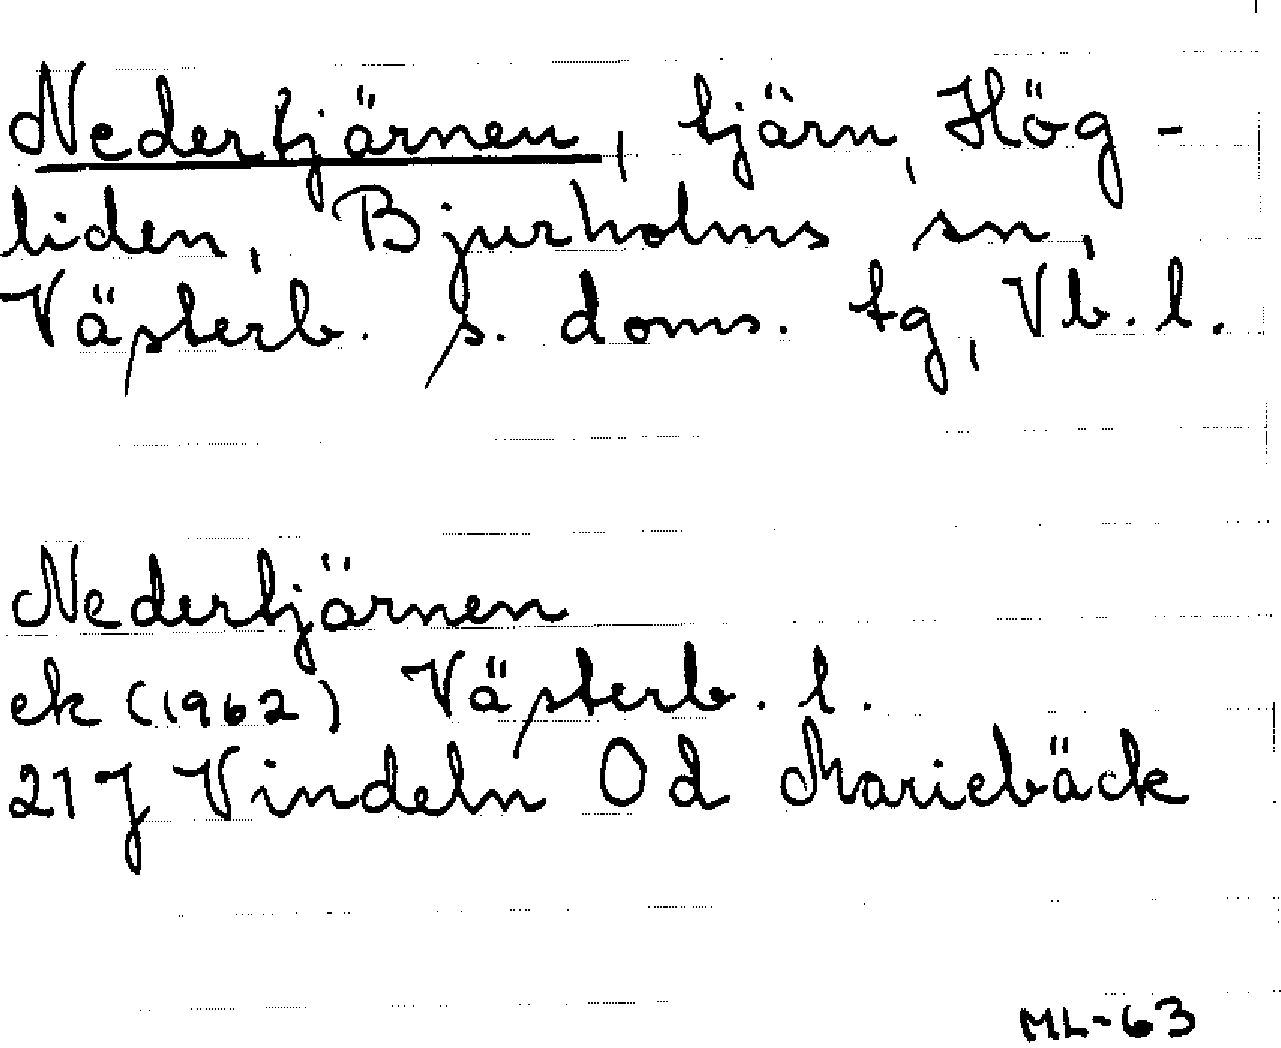 Nedertjärnen, tjärn, Hög-
liden, Bjurholms sn,
Västerb. s. doms. tg, Vb. l.
Nedertjärnen
ek (1962) Västerb. l.
21 J Vindeln 0 d Mariebäck
ML-63